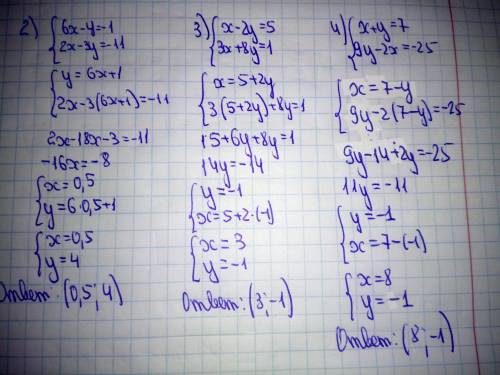 2) { 6x-y=-1
2x-3y=-11
{ y=6x+1
2x-3(6x+1)=-11
2x-18x-3=-11
-16x=-8
{ x=0,5
y=6·0,5+1
{ x=0,5
y=4
Ответ: (0,5; 4)
3) { x-2y=5
3x+8y=1
{ x=5+2y
3(5+2y)+8y=1
15+6y+8y=1
14y=-14
{ y=-1
x=5+2·(-1)
{ x=3
y=-1
Ответ: (3; -1)
4) { x+y=7
9y-2x=-25
{ x=7-y
9y-2(7-y)=-25
9y-14+2y=-25
11y=-11
{ y=-1
x=7-(-1)
{ x=8
y=-1
Ответ: (8; -1)